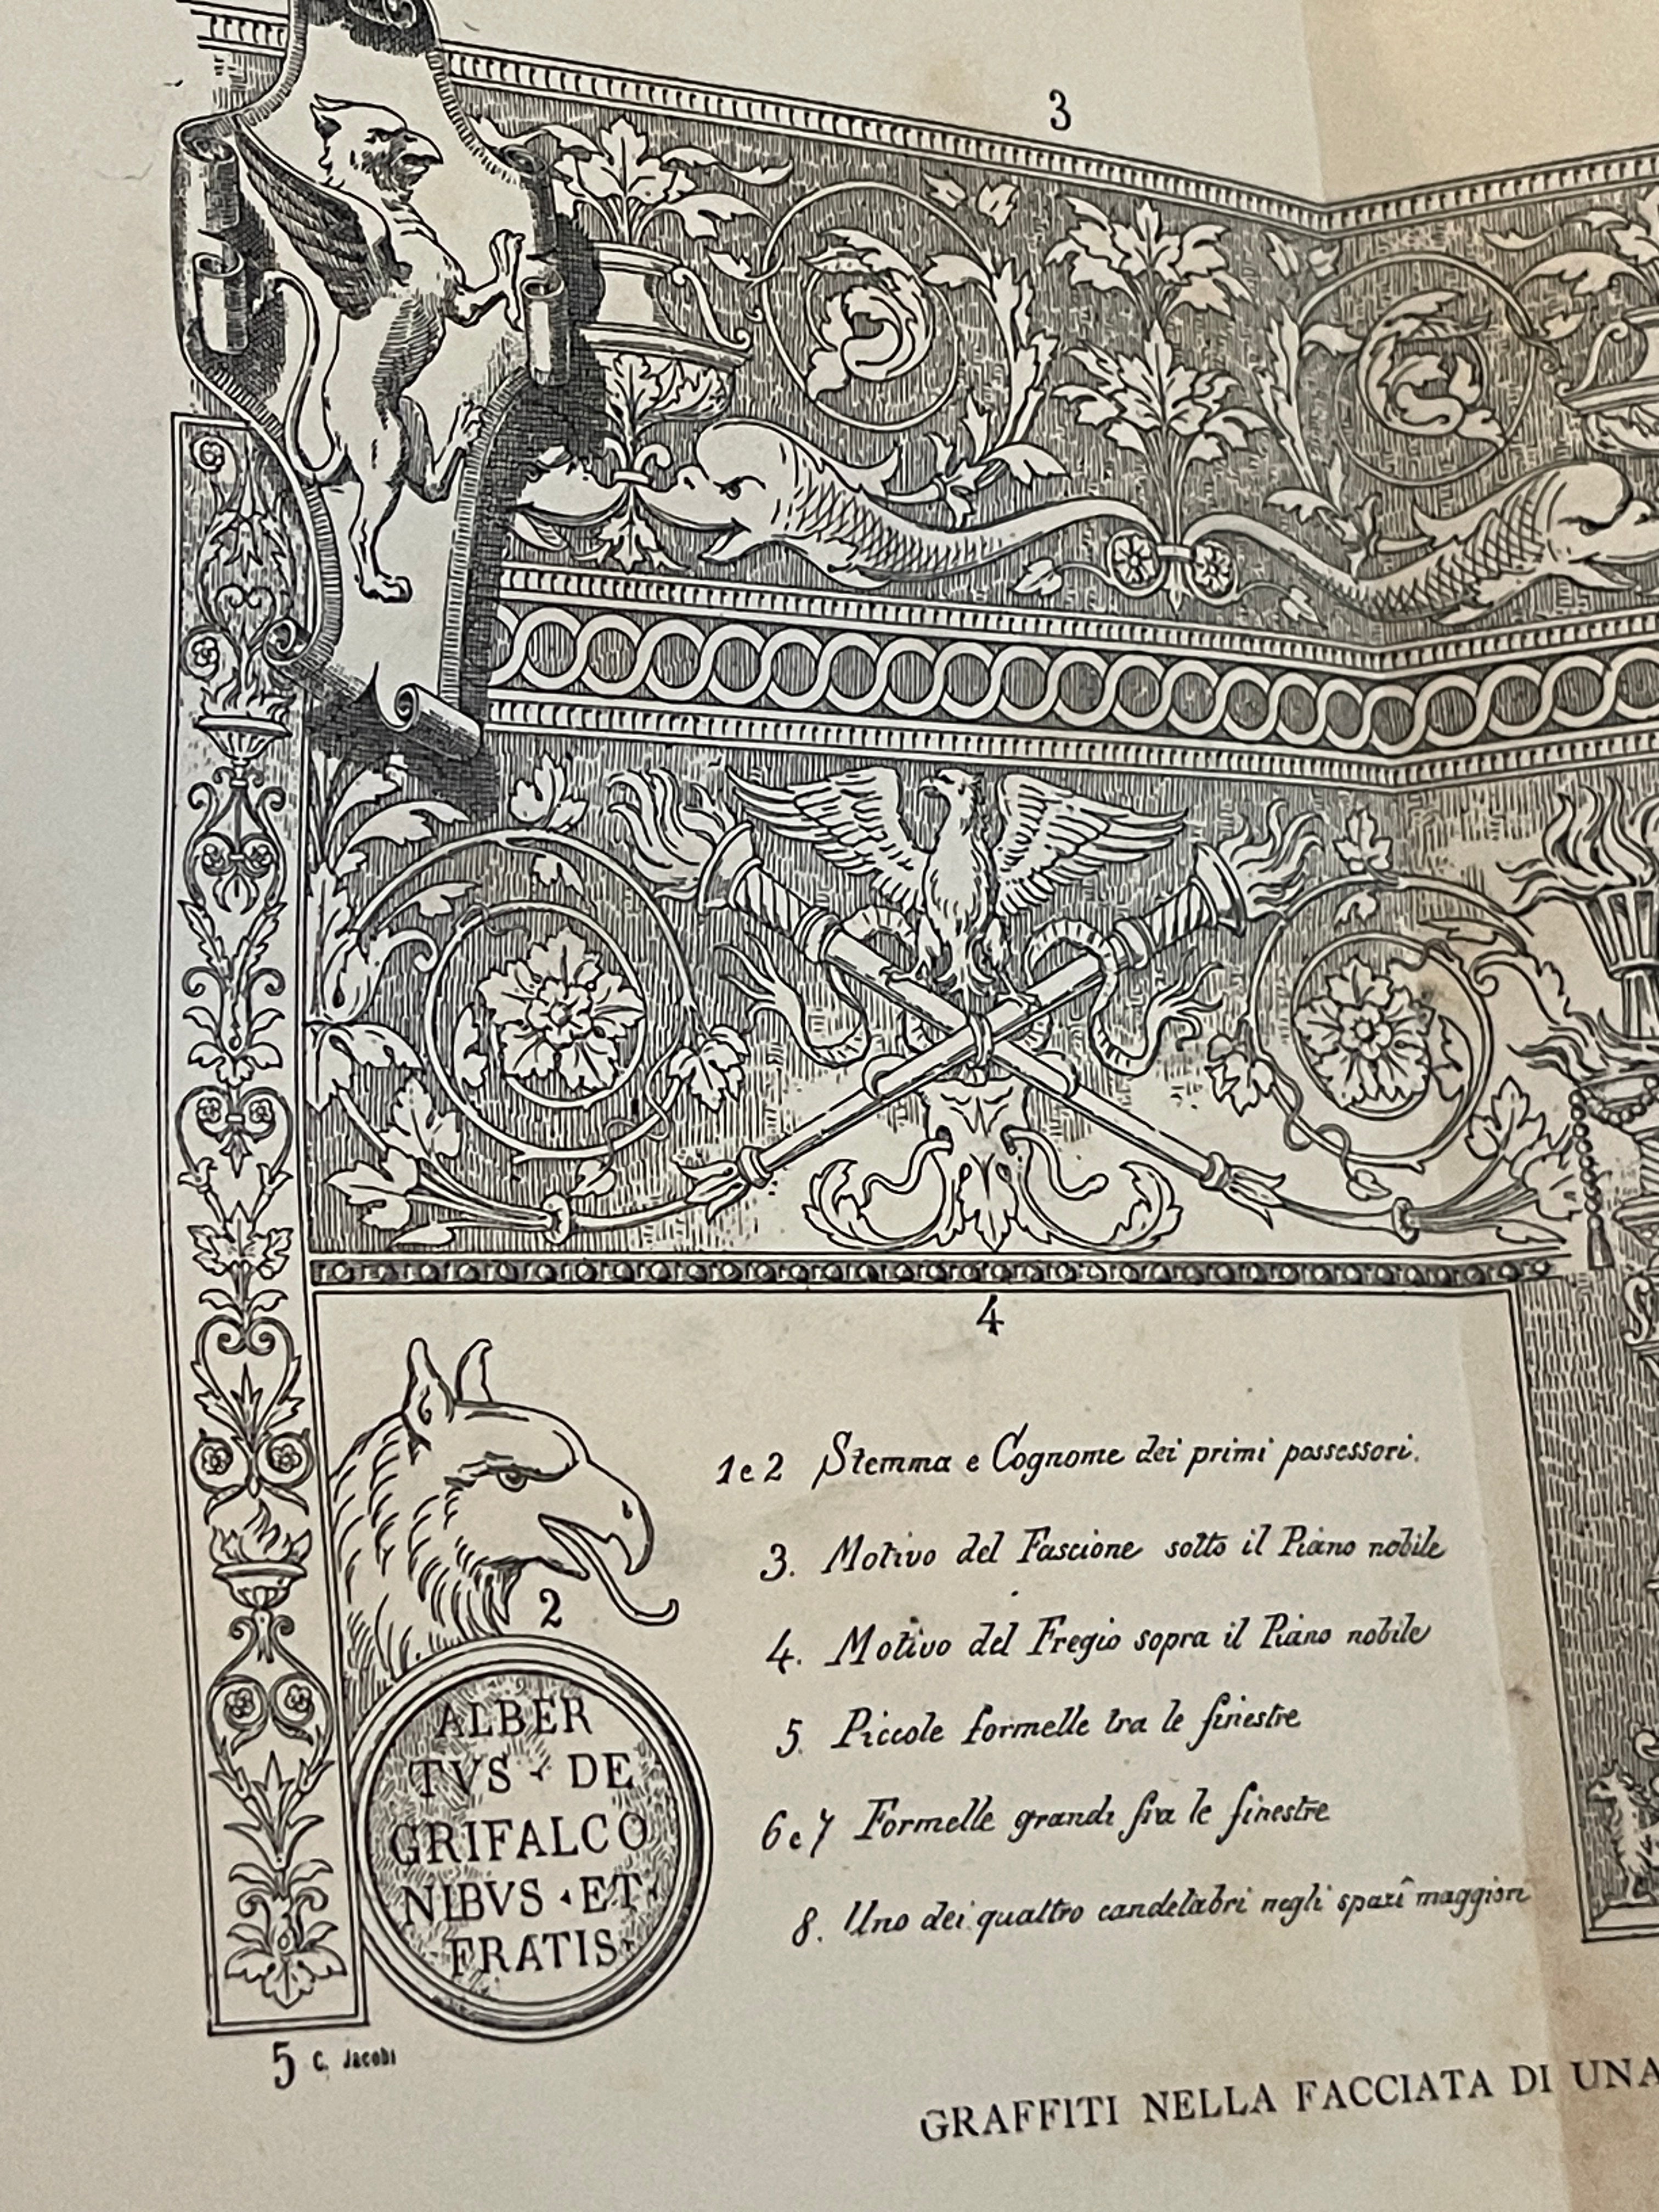 3
4
1 e 2 Stemma e Cognome dei primi possessori.
3. Motivo del Fascione sotto il Piano nobile
4. Motivo del Fregio sopra il Piano nobile
5. Piccole formelle tra le finestre
6 e 7 Formelle grandi fra le finestre
8. Uno dei quattro candelabri negli spazî maggiori
2
ALBER
TVS · DE
GRIFALCO
NIBVS · ET
FRATIS
5 C. Jacobi
GRAFFITI NELLA FACCIATA DI UNA